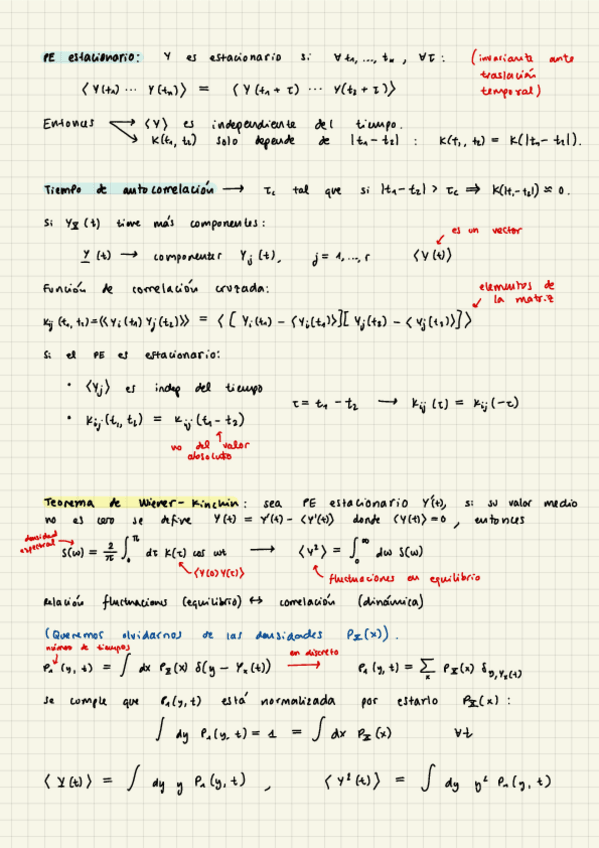 PE estacionario: Y es estacionario si ∀ t₁, ..., tₙ , ∀τ : (invariante ante traslación temporal)
⟨Y(t₁) ··· Y(tₙ)⟩ = ⟨Y(t₁ + τ) ··· Y(t₂ + τ)⟩
Entonces → ⟨Y⟩ es independiente del tiempo.
→ K(t₁, t₂) solo depende de |t₁ - t₂| : K(t₁, t₂) = K(|t₁ - t₂|).
Tiempo de autocorrelación → τc tal que si |t₁ - t₂| > τc ⇒ K(|t₁ - t₂|) ≈ 0.
Si Y_X(t) tiene más componentes:
es un vector
Y(t) → componentes Yj(t), j = 1, ..., r ⟨Y(t)⟩
Función de correlación cruzada: elementos de la matriz
Kij(t₁, t₂) = ⟨⟨Yi(t₁) Yj(t₂)⟩⟩ = ⟨[Yi(t₁) - ⟨Yi(t₁)⟩][Yj(t₂) - ⟨Yj(t₂)⟩]⟩
Si el PE es estacionario:
• ⟨Yj⟩ es indep del tiempo
τ = t₁ - t₂ → Kij(τ) = Kij(-τ)
• Kij(t₁, t₂) = Kij(t₁ - t₂)
no del valor absoluto
Teorema de Wiener-Kinchin: sea PE estacionario Y'(t), si su valor medio
no es cero se define Y(t) = Y'(t) - ⟨Y'(t)⟩ donde ⟨Y(t)⟩ = 0, entonces
densidad espectral
S(ω) = 2/π ∫₀^π dτ K(τ) cos ωt → ⟨Y²⟩ = ∫₀^∞ dω S(ω)
⟨Y(0) Y(τ)⟩ fluctuaciones en equilibrio
Relación fluctuaciones (equilibrio) ↔ correlación (dinámica)
(Queremos olvidarnos de las densidades P_X(x)).
número de tiempos en discreto
P₁(y, t) = ∫ dx P_X(x) δ(y - Yₓ(t)) → P₁(y, t) = Σₓ P_X(x) δ_{y, Yₓ(t)}
Se cumple que P₁(y, t) está normalizada por estarlo P_X(x) :
∫ dy P₁(y, t) = 1 = ∫ dx P_X(x) ∀t
⟨Y(t)⟩ = ∫ dy y P₁(y, t) , ⟨Y²(t)⟩ = ∫ dy y² P₁(y, t)